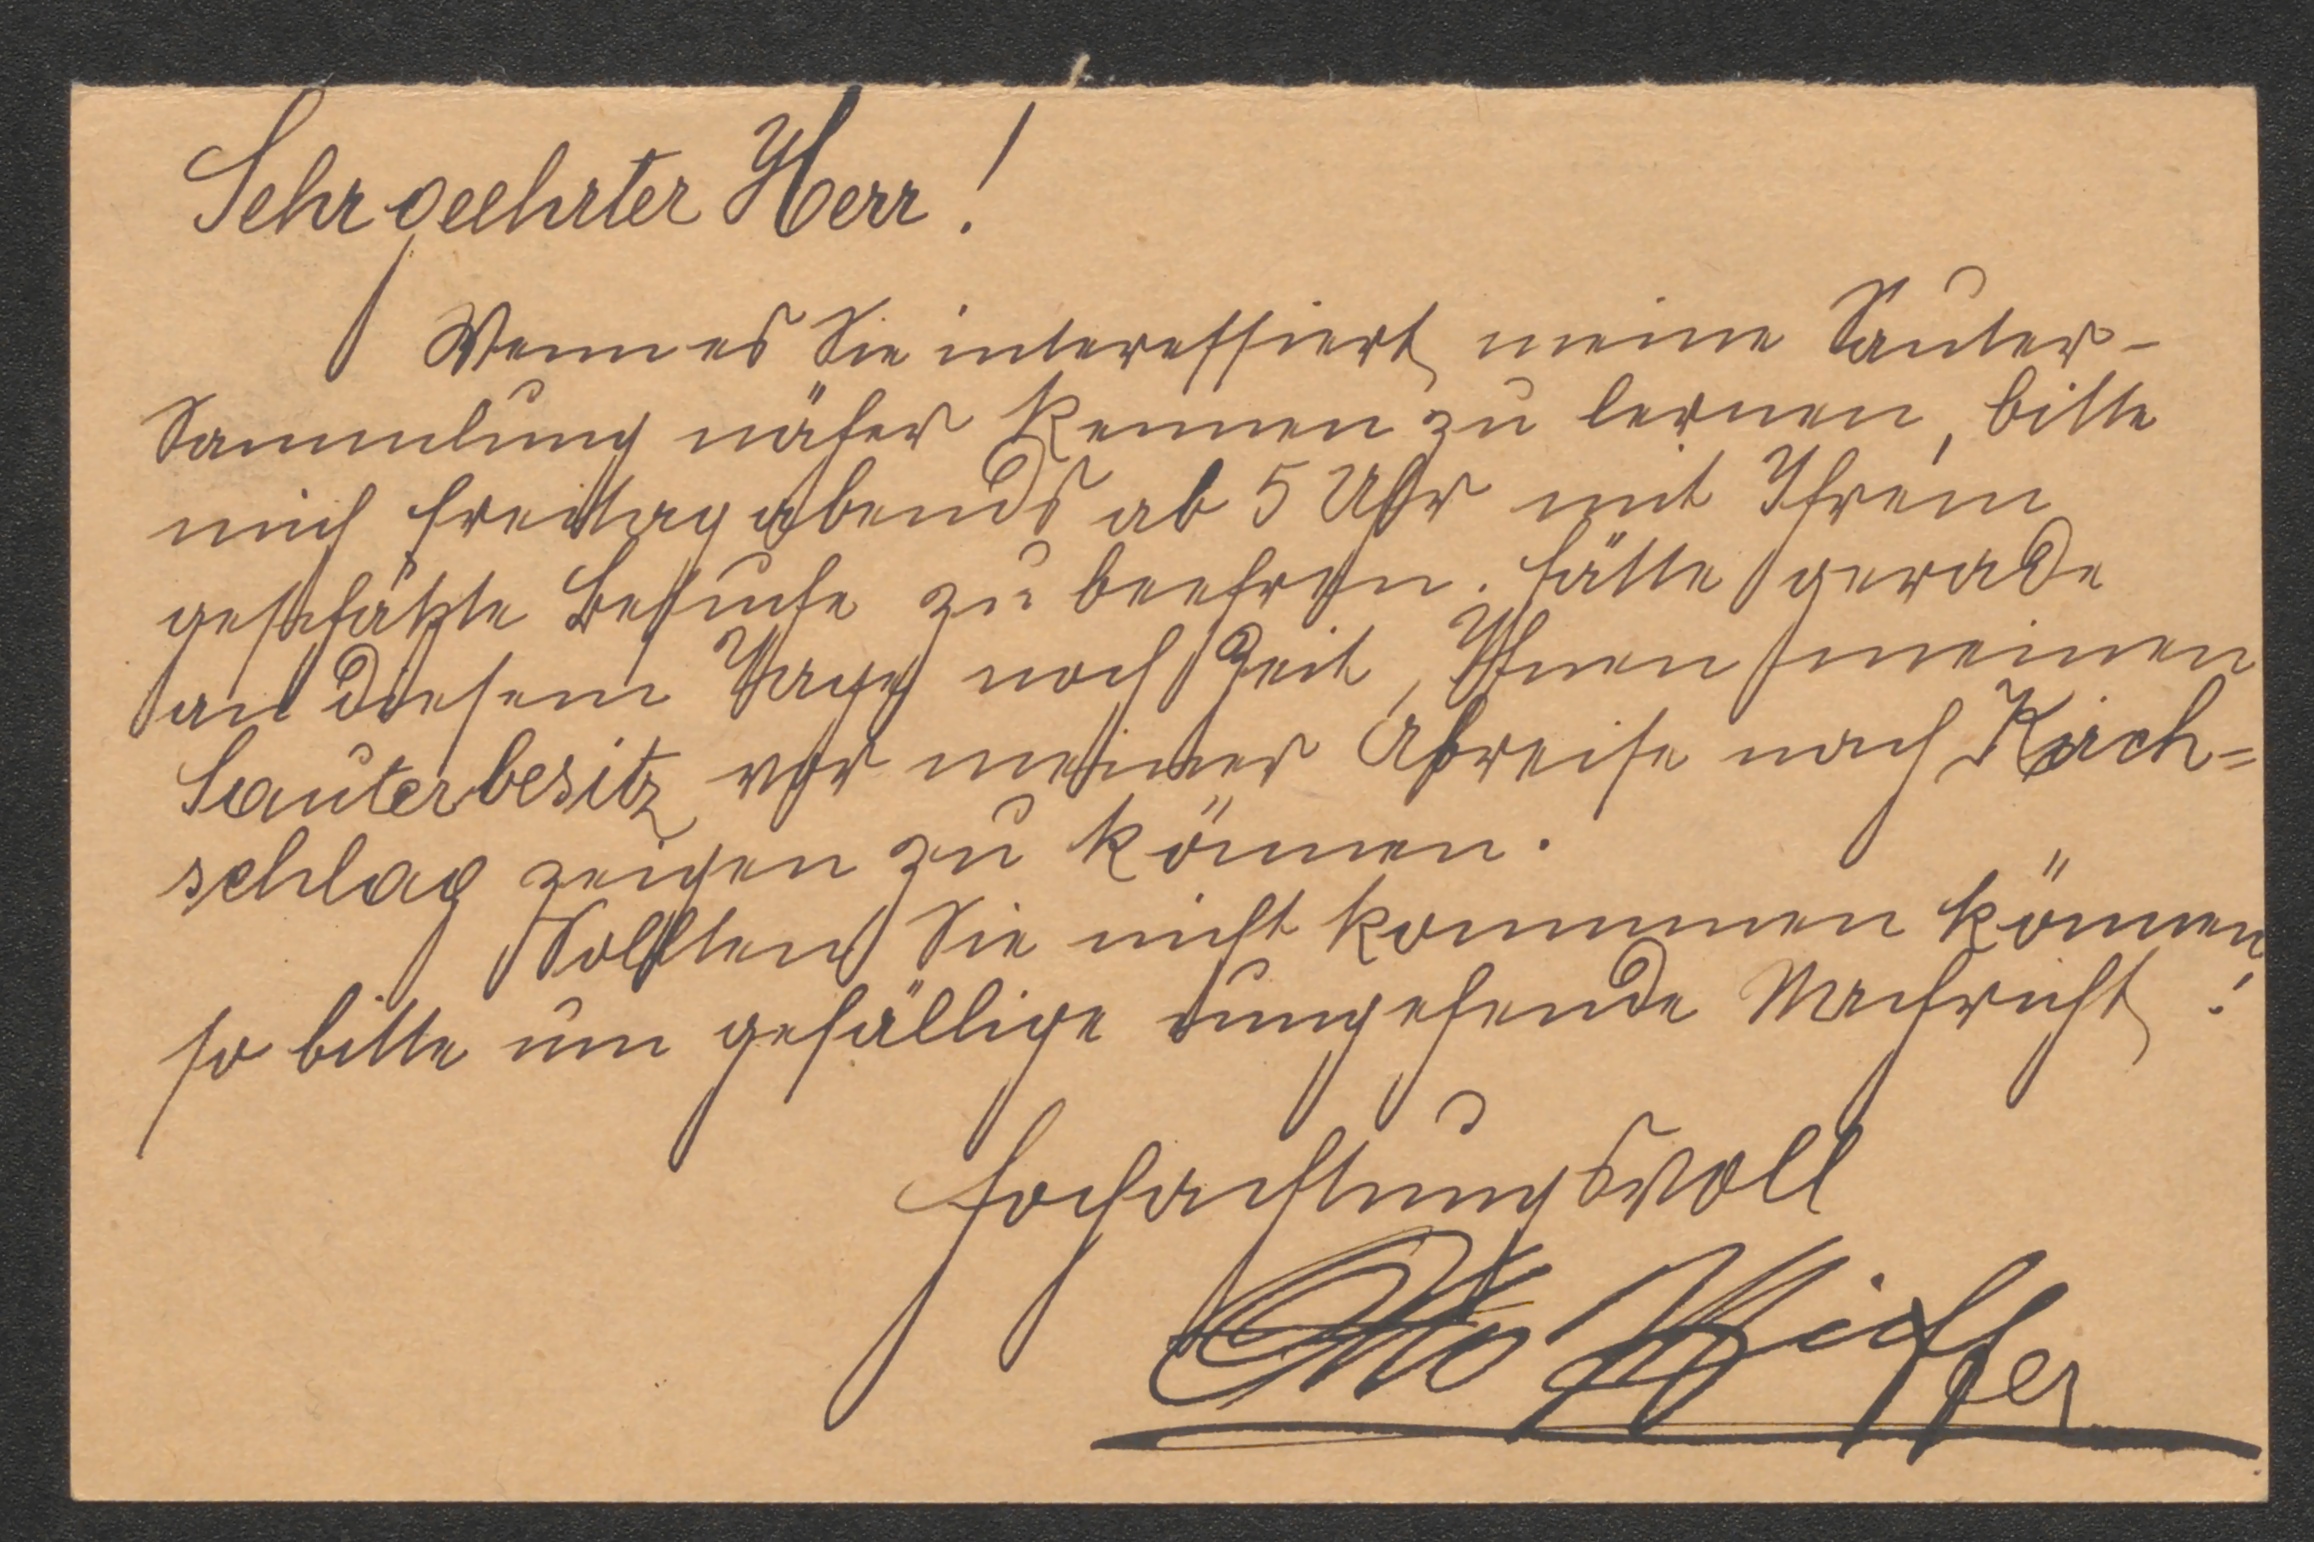 Sehr geehrter Herr!
Wenn es Sie interessiert meine Sauter-
Sammlung näher kennen zu lernen, bitte
mich Freitag abends ab 5 Uhr mit Ihrem
geschätzte Besuche zu beehren. Hätte gerade
an diesem Tage noch Zeit, Ihnen meinen
Sauterbesitz vor meiner Abreise nach Kirch=
schlag zeigen zu können.
Sollten Sie nicht kommen können
so bitte um gefällige umgehende Nachricht!
Hochachtungsvoll
Otto